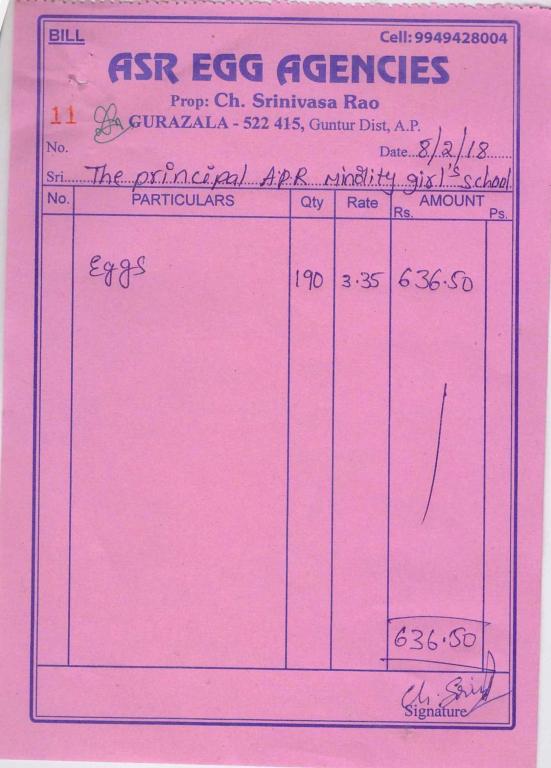 BILL
Cell: 9949428004
ASR EGG AGENCIES
Prop: Ch. Srinivasa Rao
11
GURAZALA - 522 415, Guntur Dist, A.P.
No.
Date 8/2/18
Sri The principal A.P.R minority girl's school
No. PARTICULARS Qty Rate AMOUNT
Rs. Ps.
Eggs 190 3.35 636.50
636.50
Signature